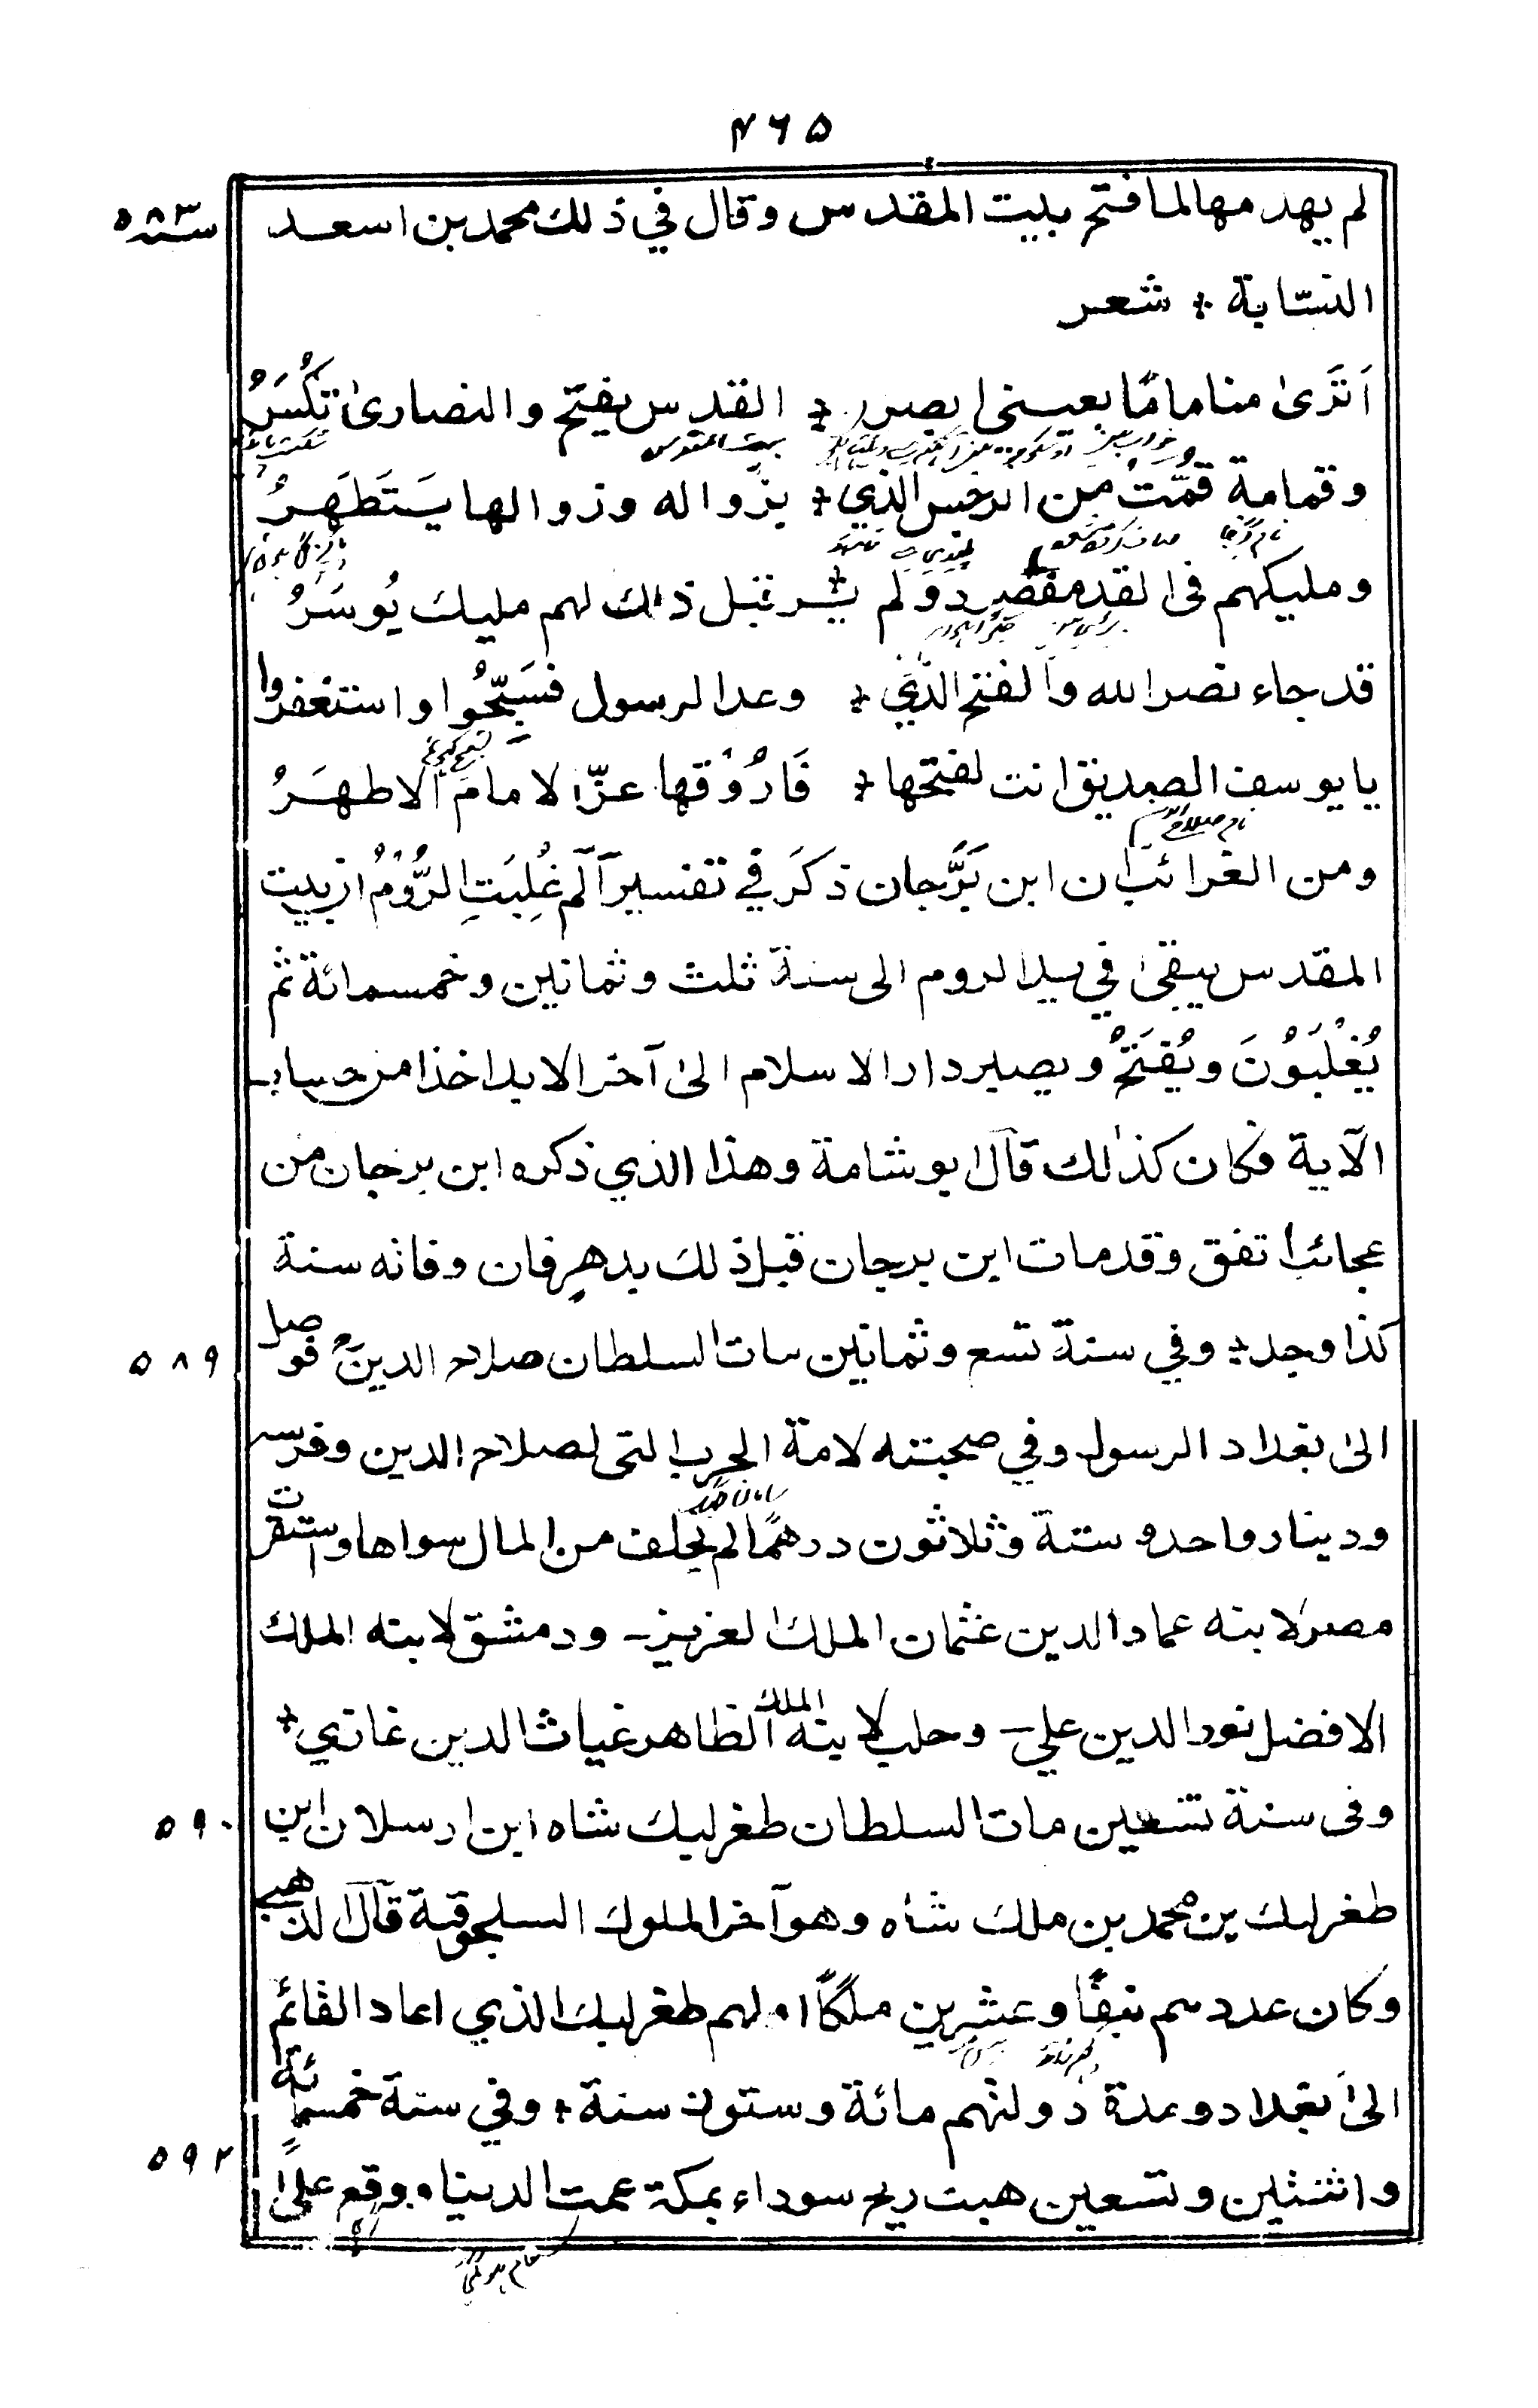 ٤٦٥
لم يهدمها لما فتح بيت المقدس وقال في ذلك محمد بن اسعد
سنة ٥٨٣
النسّابة ÷ شعر
اَتَرىٰ مناما مّا بعيني ابصر ÷ القدس يفتح والنصارىٰ تكُسَرُ
بيت المقدس
وقمامة قمّتْ من الرجس الذي ÷ بزواله وزوالها يَستَطهَرُ
ومليكهم فى القيد مقصود ولم ÷ يُر قبل ذلك لهم مليك يُوسَرُ
قد جاء نصر الله والفتح الذي ÷ وعد الرسول فسَبِّحُوا واستغفروا
يا يوسف الصديق انت لفتحها ÷ فَارُوْقها عزّ الامامَ الاطهَرُ
نام صلاح الدين
ومن الغرائب ان ابن بَرَّجان ذكَرَ في تفسير آلٓم غُلِبَتِ الرُّوْمُ ان بيت
المقدس يبقىٰ في يد الروم الى سنة ثلث وثمانين وخمسمائة ثم
يُغْلَبُوْنَ ويُفتَحُ ويصير دار الاسلام الىٰ آخر الابد اخذا من حساب
الآية فكان كذٰلك قال ابو شامة وهذا الذي ذكره ابن برجان من
عجائب اتفق وقد مات ابن برجان قبل ذلك بدهر فان وفاته سنة
كذا وجد ÷ وفي سنة تسع وثمانين مات السلطان صلاح الدين فوصل
٥٨٩
الىٰ بغداد الرسول وفي صحبته لامة الحرب التى لصلاح الدين وفرسه
ودينار واحد و ستة وثلاثون درهمًا لم يخلف من المال سواها واستقرت
مصر لابنه عماد الدين عثمان الملك العزيز ـ ودمشق لابنه الملك
الافضل نور الدين علي ـ وحلب لابنه الملك الظاهر غياث الدين غازي ÷
وفى سنة تسعين مات السلطان طغرلبك شاه ابن ارسلان ابن
٥٩٠
طغرلبك بن محمد بن ملك شاه وهو آخر الملوك السلجوقية قال الذهبي
وكان عددهم نيفًا وعشرين ملكًا اولهم طغرلبك الذي اعاد القائم
الىٰ بغداد ومدة دولتهم مائة وستون سنة ÷ وفي سنة خمسمائة
واثنتين وتسعين هبت ريح سوداء بمكة عمت الدنيا ووقع علىٰ
٥٩٢